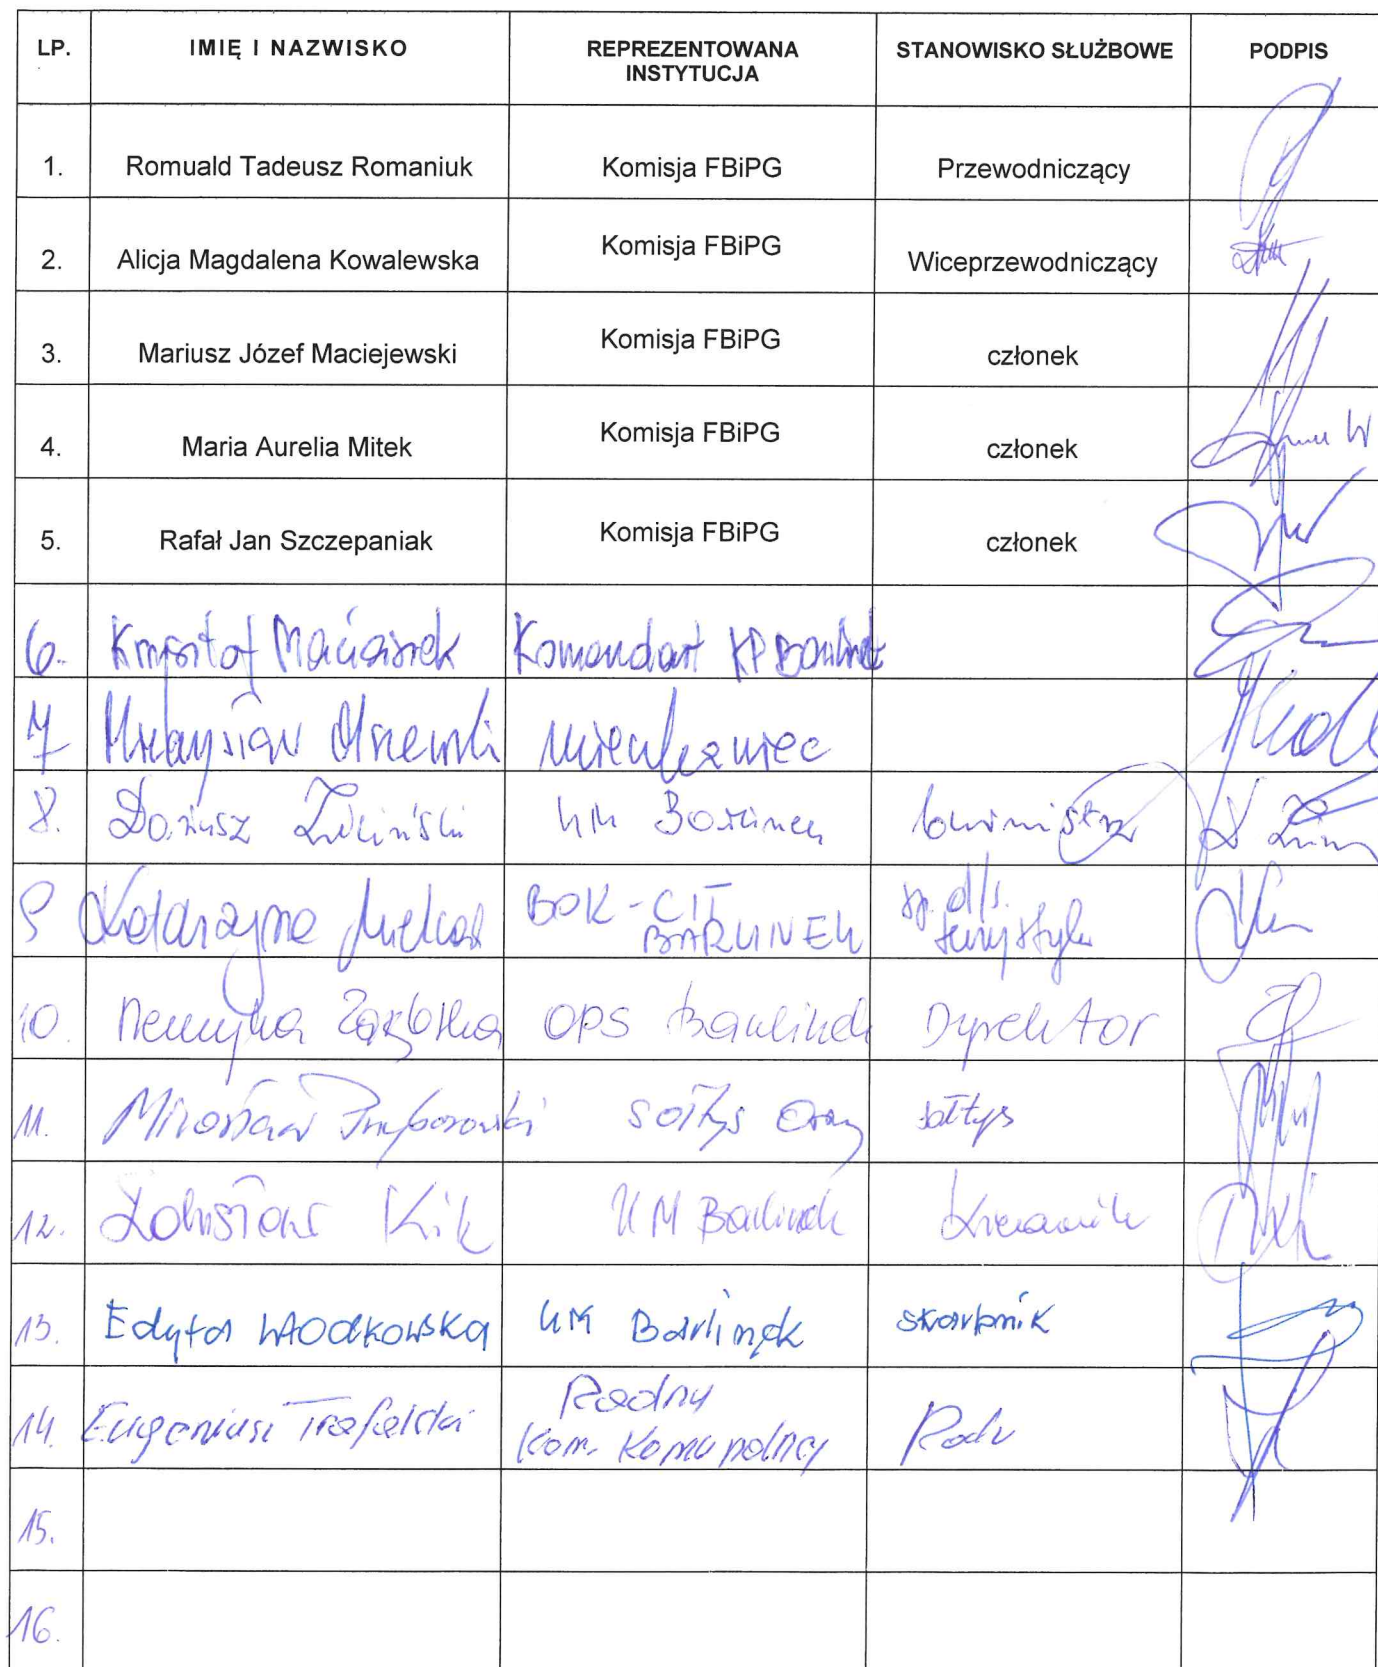 LP. IMIĘ I NAZWISKO REPREZENTOWANA INSTYTUCJA STANOWISKO SŁUŻBOWE PODPIS
1. Romuald Tadeusz Romaniuk Komisja FBiPG Przewodniczący
2. Alicja Magdalena Kowalewska Komisja FBiPG Wiceprzewodniczący
3. Mariusz Józef Maciejewski Komisja FBiPG członek
4. Maria Aurelia Mitek Komisja FBiPG członek
5. Rafał Jan Szczepaniak Komisja FBiPG członek
6. Krzysztof Komendant KP Barlinek
7 mieszkaniec
8. Dariusz Zieliński UM Barlinek burmistrz
9 Katarzyna BOK-CIT BARLINEK sp. d/s. turystyki
10. OPS Barlinek Dyrektor
11. Mirosław sołtys sołtys
12. Kik UM Barlinek kierownik
13. Edyta Włodkowska UM Barlinek skarbnik
14. Eugeniusz Trafalski Radny Kom. Komunalnej Radny
15.
16.